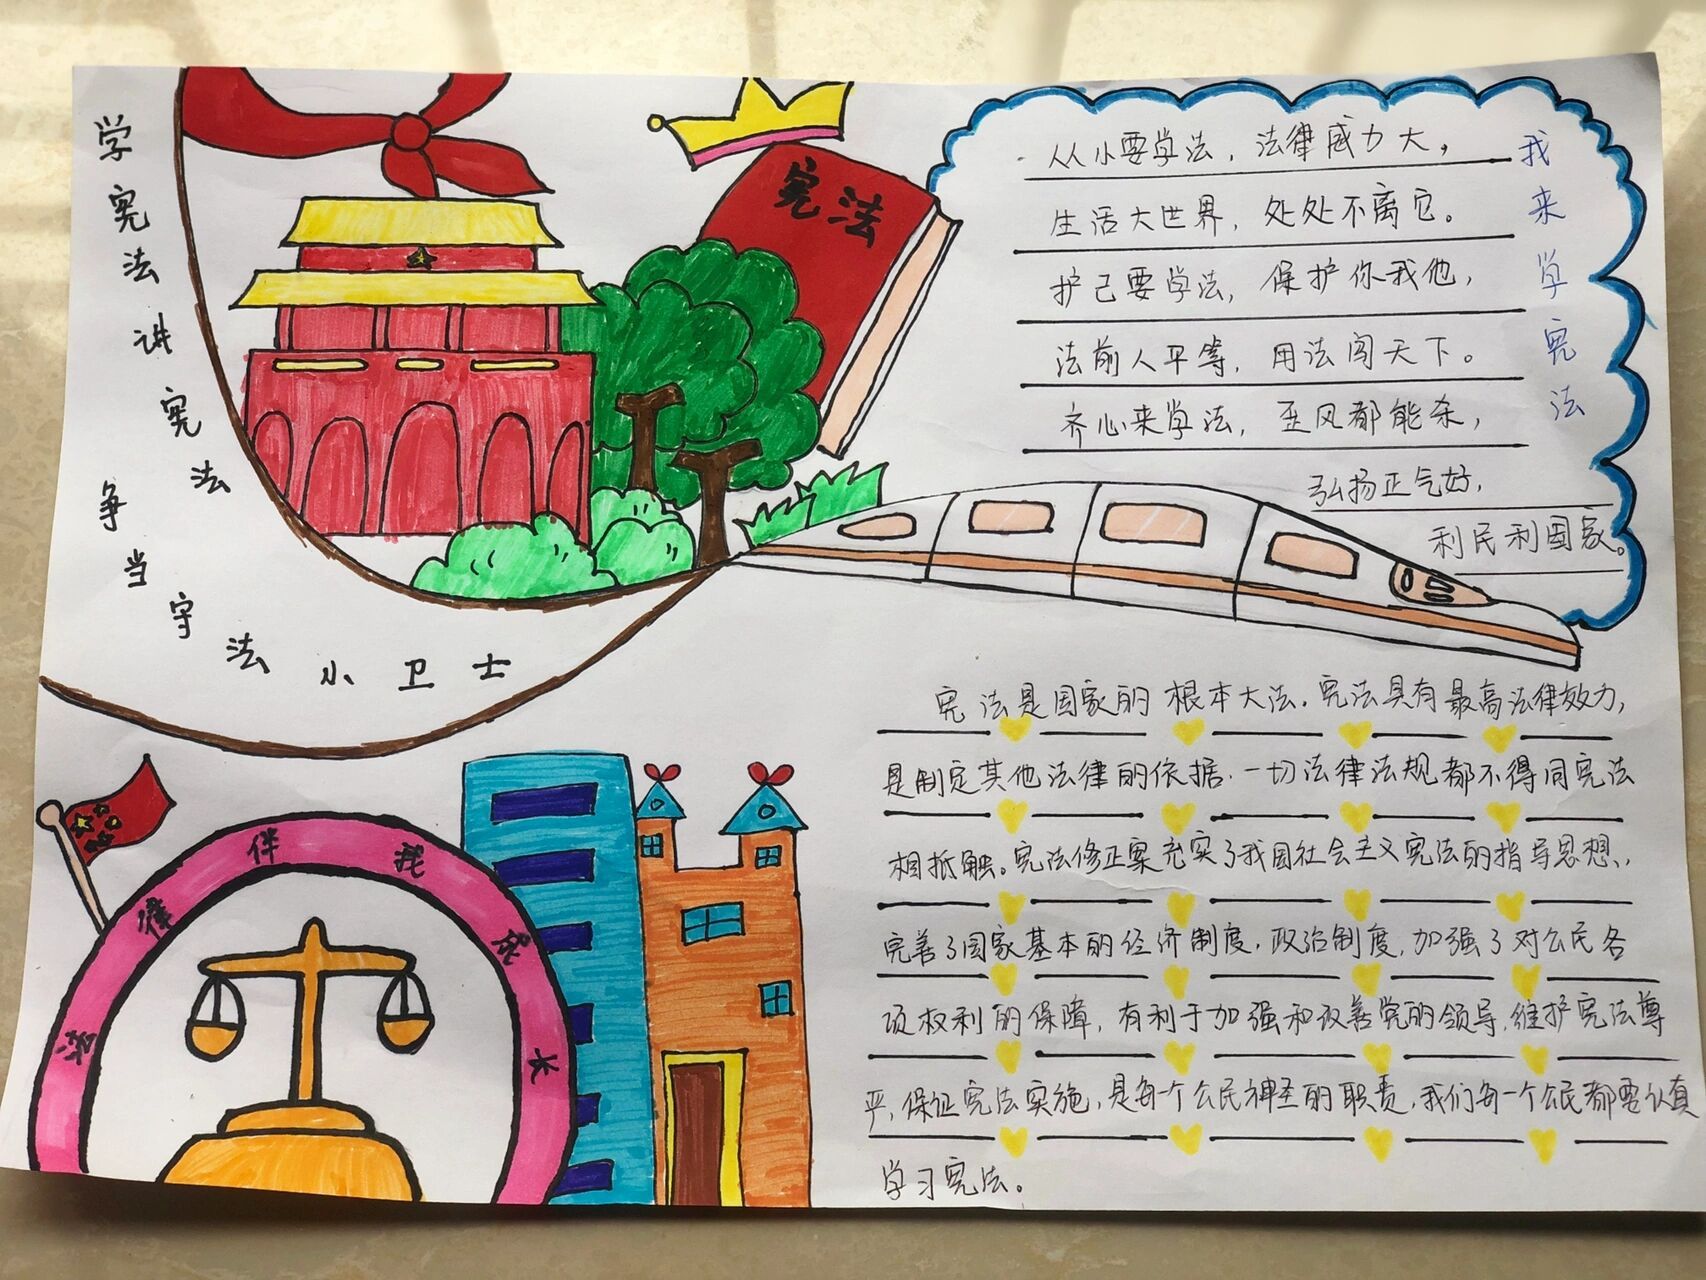 学宪法讲宪法
争当守法小卫士
宪法
我来学宪法
从小要学法，法律威力大，
生活大世界，处处不离它。
护己要学法，保护你我他，
法前人平等，用法闯天下。
齐心来学法，歪风都能杀，
弘扬正气好，
利民利国家。
法律伴我成长
宪法是国家的根本大法.宪法具有最高法律效力,
是制定其他法律的依据.一切法律法规都不得同宪法
相抵触。宪法修正案充实了我国社会主义宪法的指导思想,
完善了国家基本的经济制度.政治制度,加强了对公民各
项权利的保障,有利于加强和改善党的领导,维护宪法尊
严,保证宪法实施,是每一个公民神圣的职责,我们每一个公民都要认真
学习宪法。